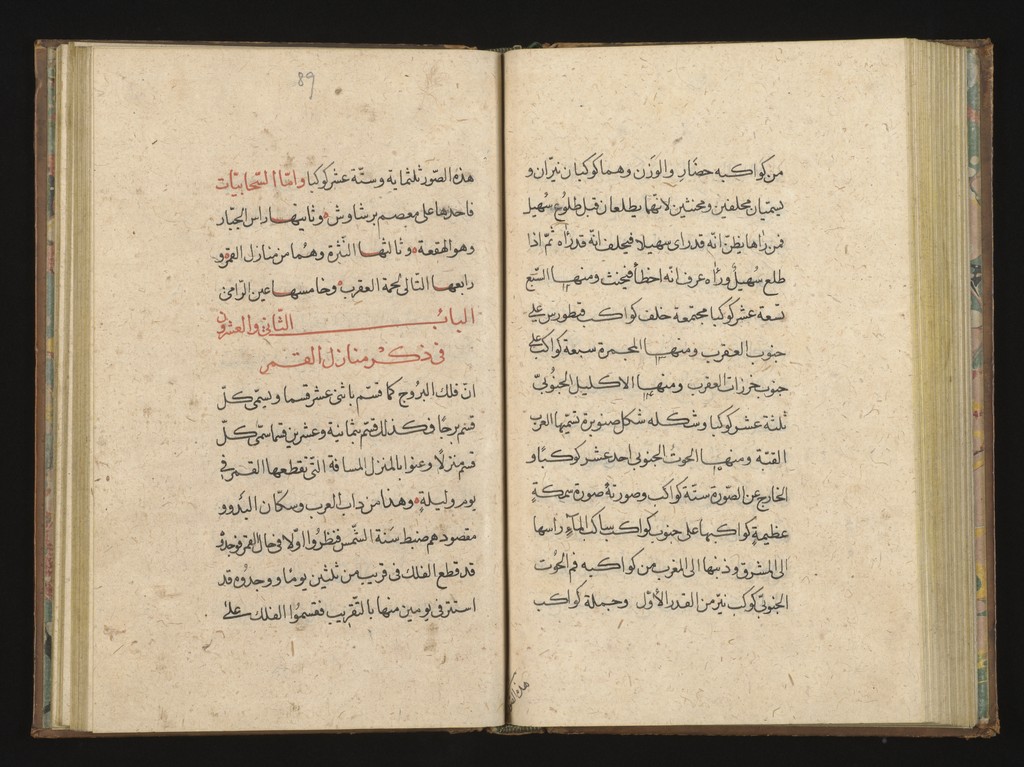 من كواكبه حضار والوزن وهما كوكبان نيران و
يسميان محلفين ومحنثين لانهما يطلعان قبل طلوع سهيل
فمن راها يظن انه قد رأى سهيلا فيحلف انه قد رآه ثم اذا
طلع سهيل ورآه عرف انه اخطأ فيحنث ومنها السبع
تسعة عشر كوكبا مجتمعة خلف كواكب قنطورس على
جنوب العقرب ومنها المجمرة سبعة كواكب على
جنوب خرزات العقرب ومنها الاكليل الجنوبي
ثلثة عشر كوكبا وشكله شكل صنوبرة تسميها العرب
القبة ومنها الحوت الجنوبي احد عشر كوكبا و
الخارج عن الصورة ستة كواكب وصورته صورة سمكة
عظيمة كواكبها على جنوب كواكب ساكب الماء راسها
الى المشرق وذنبها الى المغرب من كواكبه فم الحوت
الجنوبي كوكب نير من القدر الاول وجملة كواكب
هذه
89
هذه الصور ثلثماية وستة عشر كوكبا واما السحابيات
فاحدها على معصم برشاوش وثانيها راس الجبار
وهو الهقعة وثالثها النثرة وهما من منازل القمر و
رابعها التالى لحمة العقرب وخامسها عين الرامى
الباب الثانى والعشرون
فى ذكر منازل القمر
ان فلك البروج كما قسم باثنى عشر قسما ويسمى كل
قسم برجا فكذلك قسم بثمانية وعشرين قسما سمى كل
قسم منزلا وعنوا بالمنزل المسافة التى يقطعها القمر فى
يوم وليلة وهذا من داب العرب وسكان البدو و
مقصودهم ضبط سنة الشمس فنظروا اولا فى حال القمر فوجدوه
قد قطع الفلك فى قريب من ثلثين يوما ووجدوه قد
استتر فى يومين منها بالتقريب فقسموا الفلك على